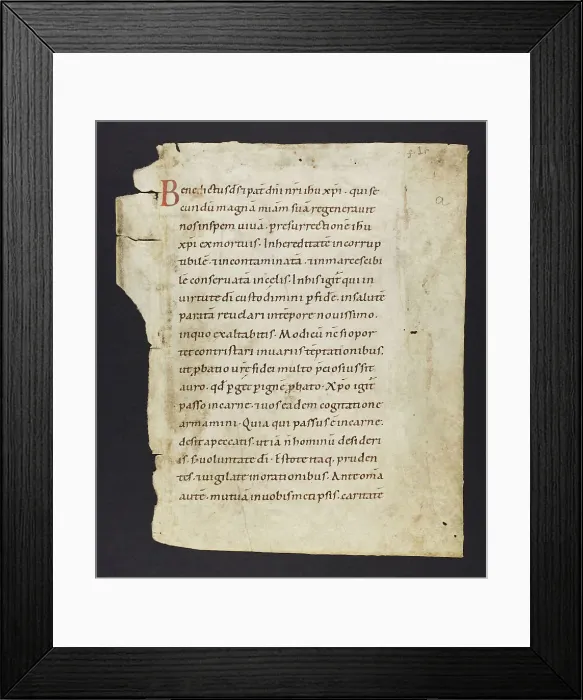 Benedictus ds & pat dñi nr̃i ihu xpi · qui se
cundũ magnã miam suã regeneravit
nos in spem vivã · p resurrectionẽ ihu
xpi ex mortuis · In hereditatẽ incorrup
tibilẽ · & incontaminatã · & inmarcescibi
lẽ conservatã in celis · In his igit̃ qui in
virtute di custodimini p fidẽ · in salutẽ
paratã revelari in tẽpore novissimo ·
in quo exaltabitis · Modicũ nc̃ si opor
tet contristari in variis tẽptationibus ·
ut pbatio urẽ fidei multo p̃ciosius sit
auro · qd p
passo in carne · & vos eadem cogitatione
armamini · Quia qui passus ẽ in carne ·
desit a peccatis · ut iã ñ hominũ desideri
is · s; voluntate di · Estote itaq; pruden
tes · & vigilate in orationibus · Ante omã
autẽ · mutuã in vobismetipsis · caritatẽ
a